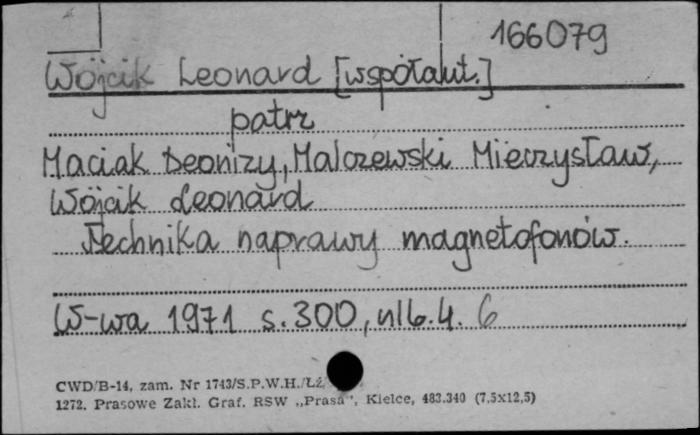 166079
Wójcik Leonard [współaut.]
patrz
Maciak Deonizy, Malczewski Mieczysław,
Wójcik Leonard
Technika naprawy magnetofonów.
W-wa 1971 s. 300, nlb. 4. 6
CWD/B-14, zam. Nr 1743/S.P.W.H./Łź
1272. Prasowe Zakł. Graf. RSW „Prasa”, Kielce, 483.340 (7,5x12,5)